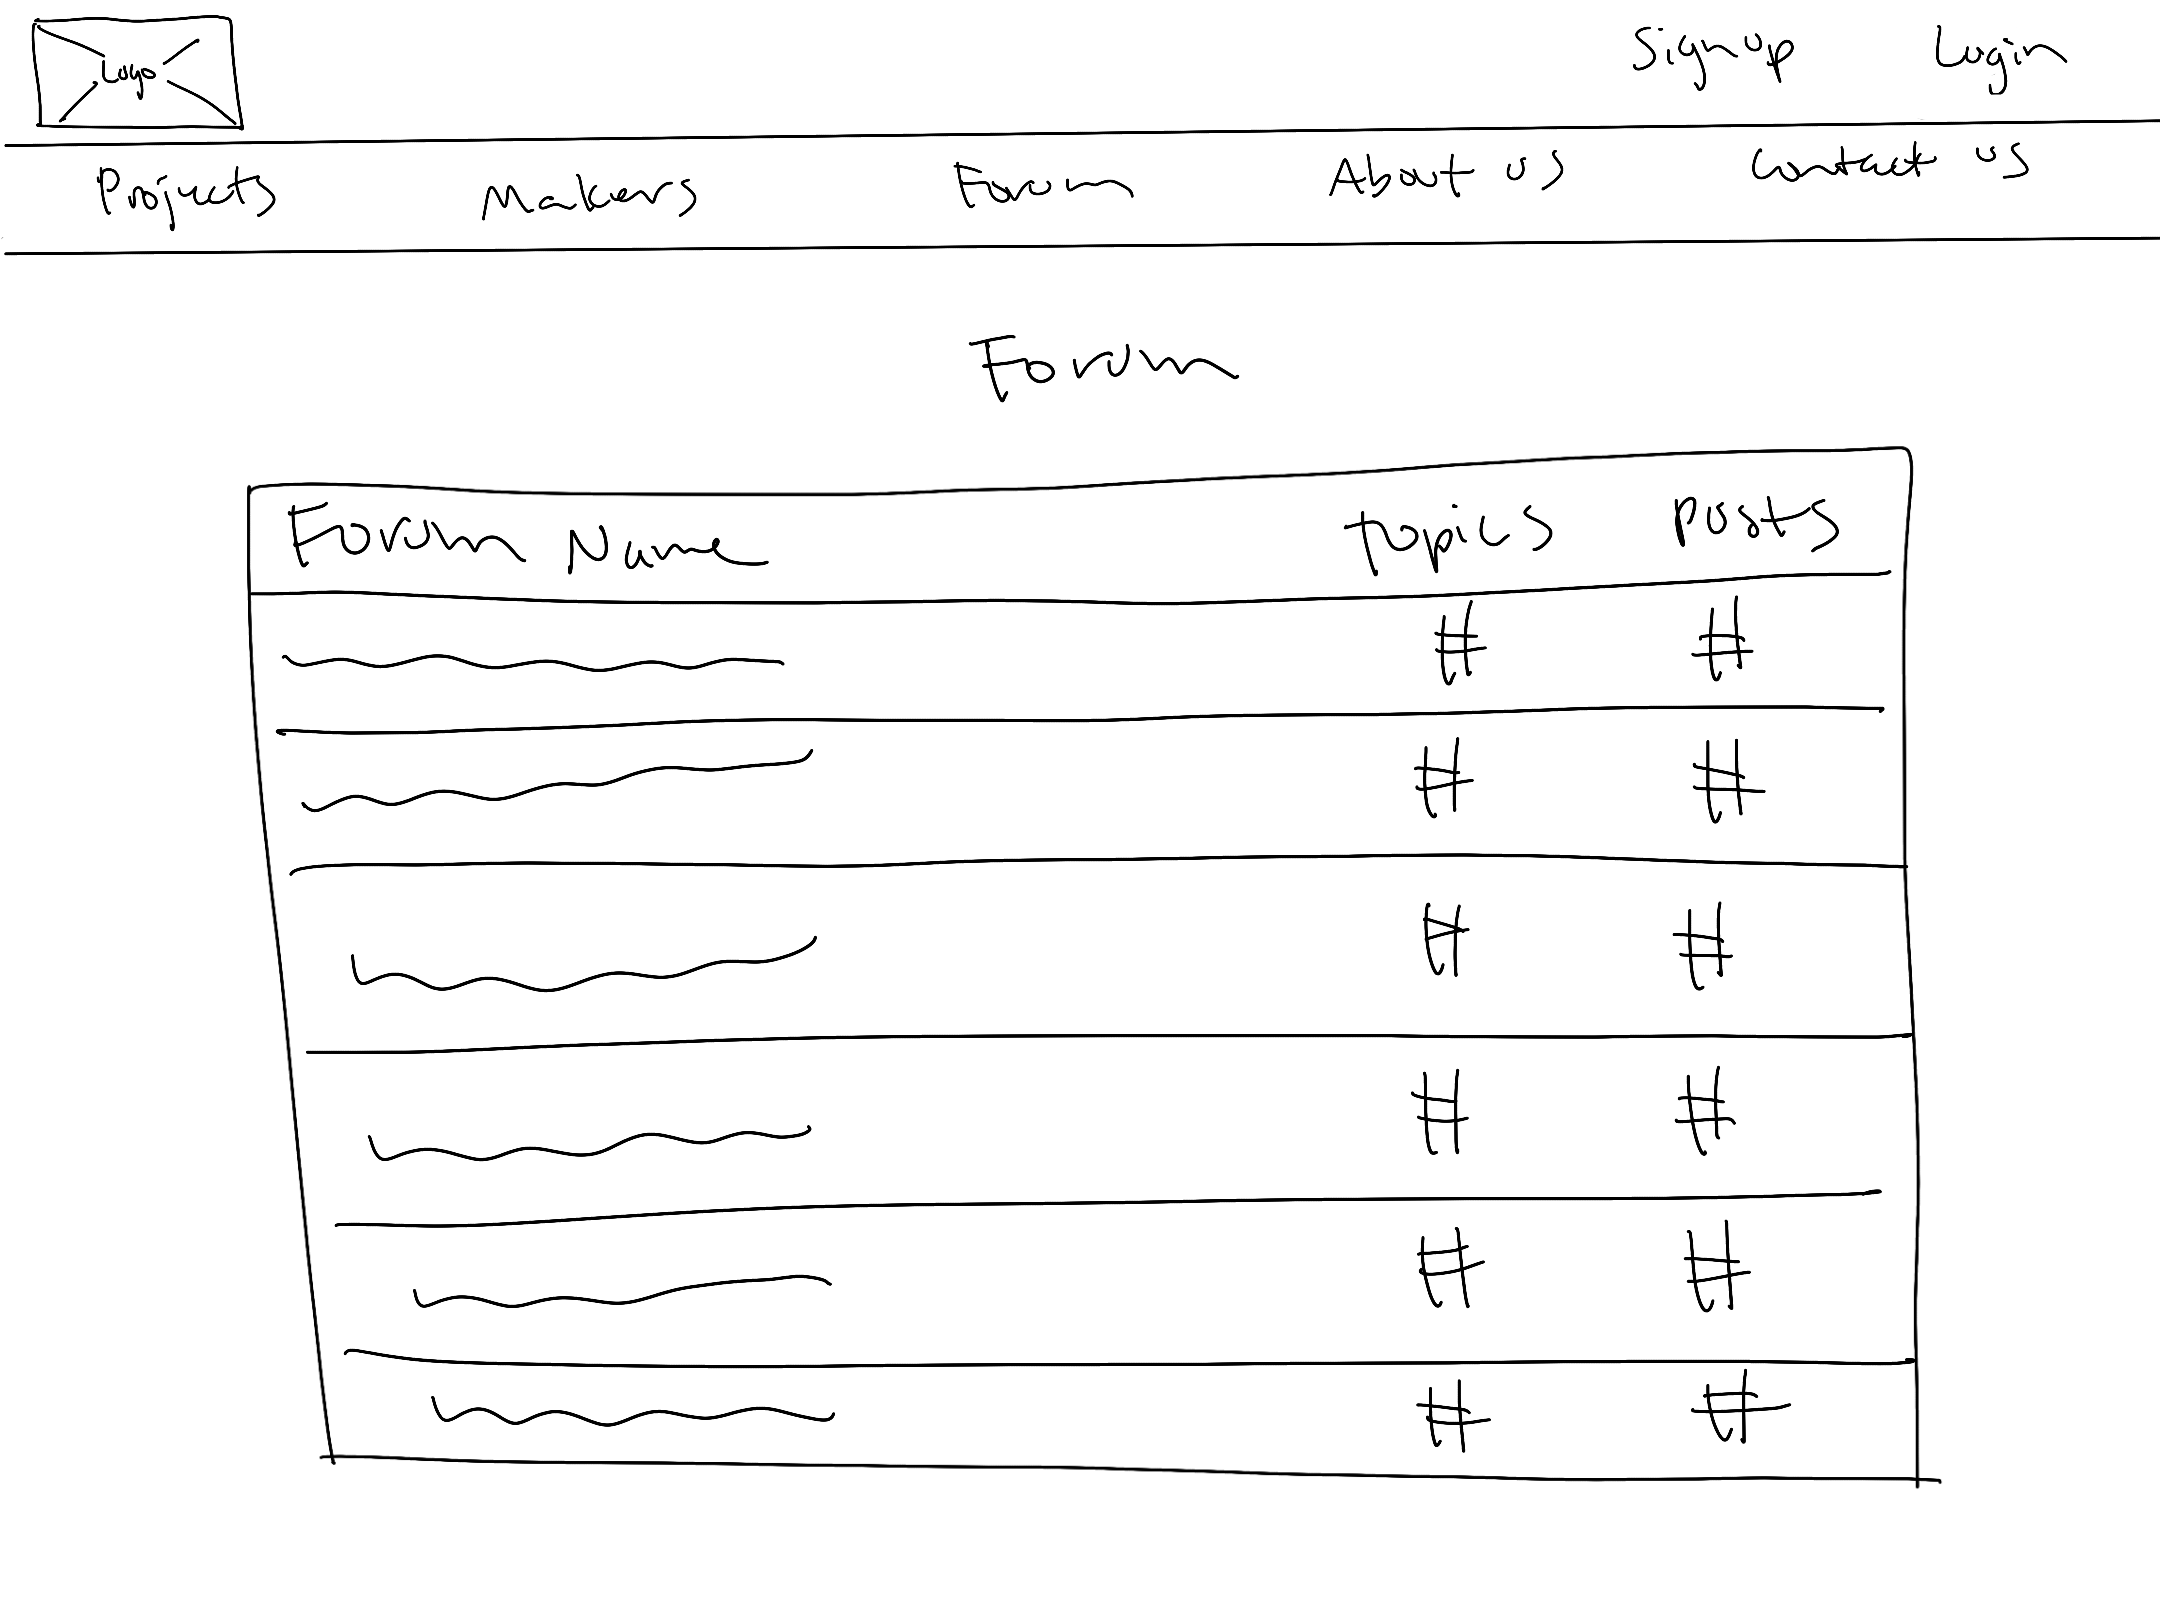 Logo
Signup Login
Projects Makers Forum About us Contact us
Forum
Forum Name topics posts
# #
# #
# #
# #
# #
# #